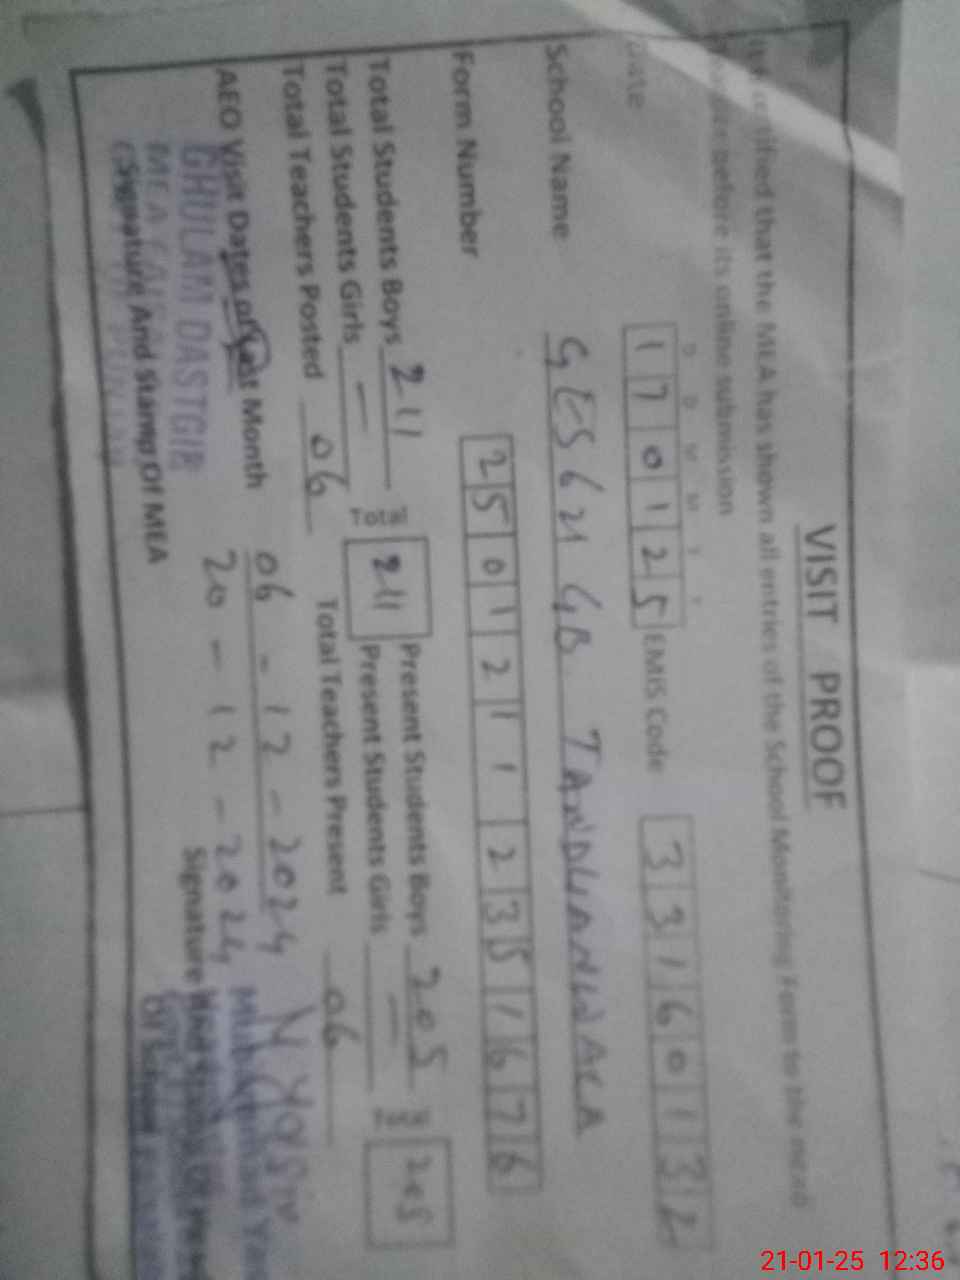 VISIT PROOF
certified that the MEA has shown all entries of the School Monitoring Form to the head
before its online submission
D D M M Y Y
Date 170125 EMIS Code 33160132
School Name GES 621 GB TANDLIANWALA
Form Number 2501211235 1676
Total Students Boys 211 Total 211 Present Students Boys 205 205
Total Students Girls — Present Students Girls —
Total Teachers Posted 06 Total Teachers Present 06
AEO Visit Dates of Last Month 06 - 12 - 2024
20 - 12 - 2024
GHULAM DASTGIR
MEA
Signature And Stamp Of MEA
Signature